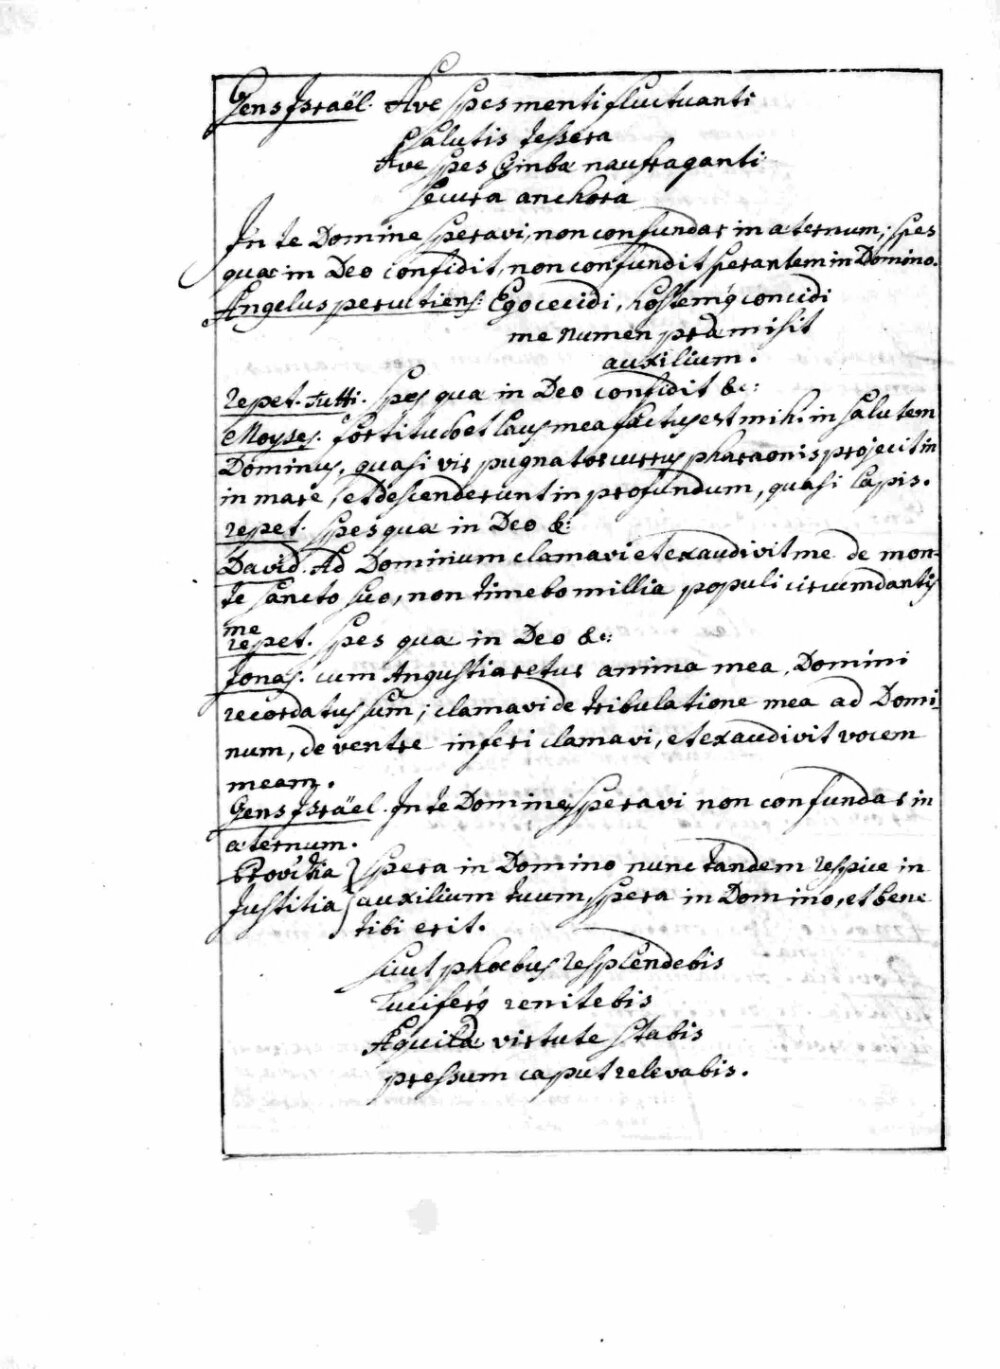 Gens Israël. Ave spes menti fluctuanti
Salutis tessera
Ave spes Cimbæ naufraganti
secura anchora
In te Domine speravi, non confundar in æternum; spes
quæ in Deo confidit, non confundit sperantem in Domino.
Angelus percutiens: Ego cecidi, hostemq́ concidi
me Numen præmisit
auxilium.
repet. Tutti. spes quæ in Deo confidit &c:
Moyses. fortitudo et laus mea factus est mihi in salutem
Dominus, quasi vir pugnator currus pharaonis projecit in
in mare, et descenderunt in profundum, quasi lapis.
repet. spes quæ in Deo &:
David. Ad Dominum clamavi et exaudivit me de mon-
te sancto suo, non timebo millia populi circumdantis
me
repet. spes quæ in Deo &c:
Jonas. cum Angustiaretur anima mea, Domini
recordatus sum; clamavi de tribulatione mea ad Domi-
num, de ventre inferi clamavi, et exaudivit vocem
meam.
Gens Israël. In te Domine speravi non confundar in
æternum.
Provitia } spera in Domino nunc tandem respice in
Justitia } auxilium tuum, spera in Domino, et bene
tibi erit.
sicut phœbus resplendebis
Luciferq́ renitebis
Aquilæ virtute stabis
pressum caput relevabis.